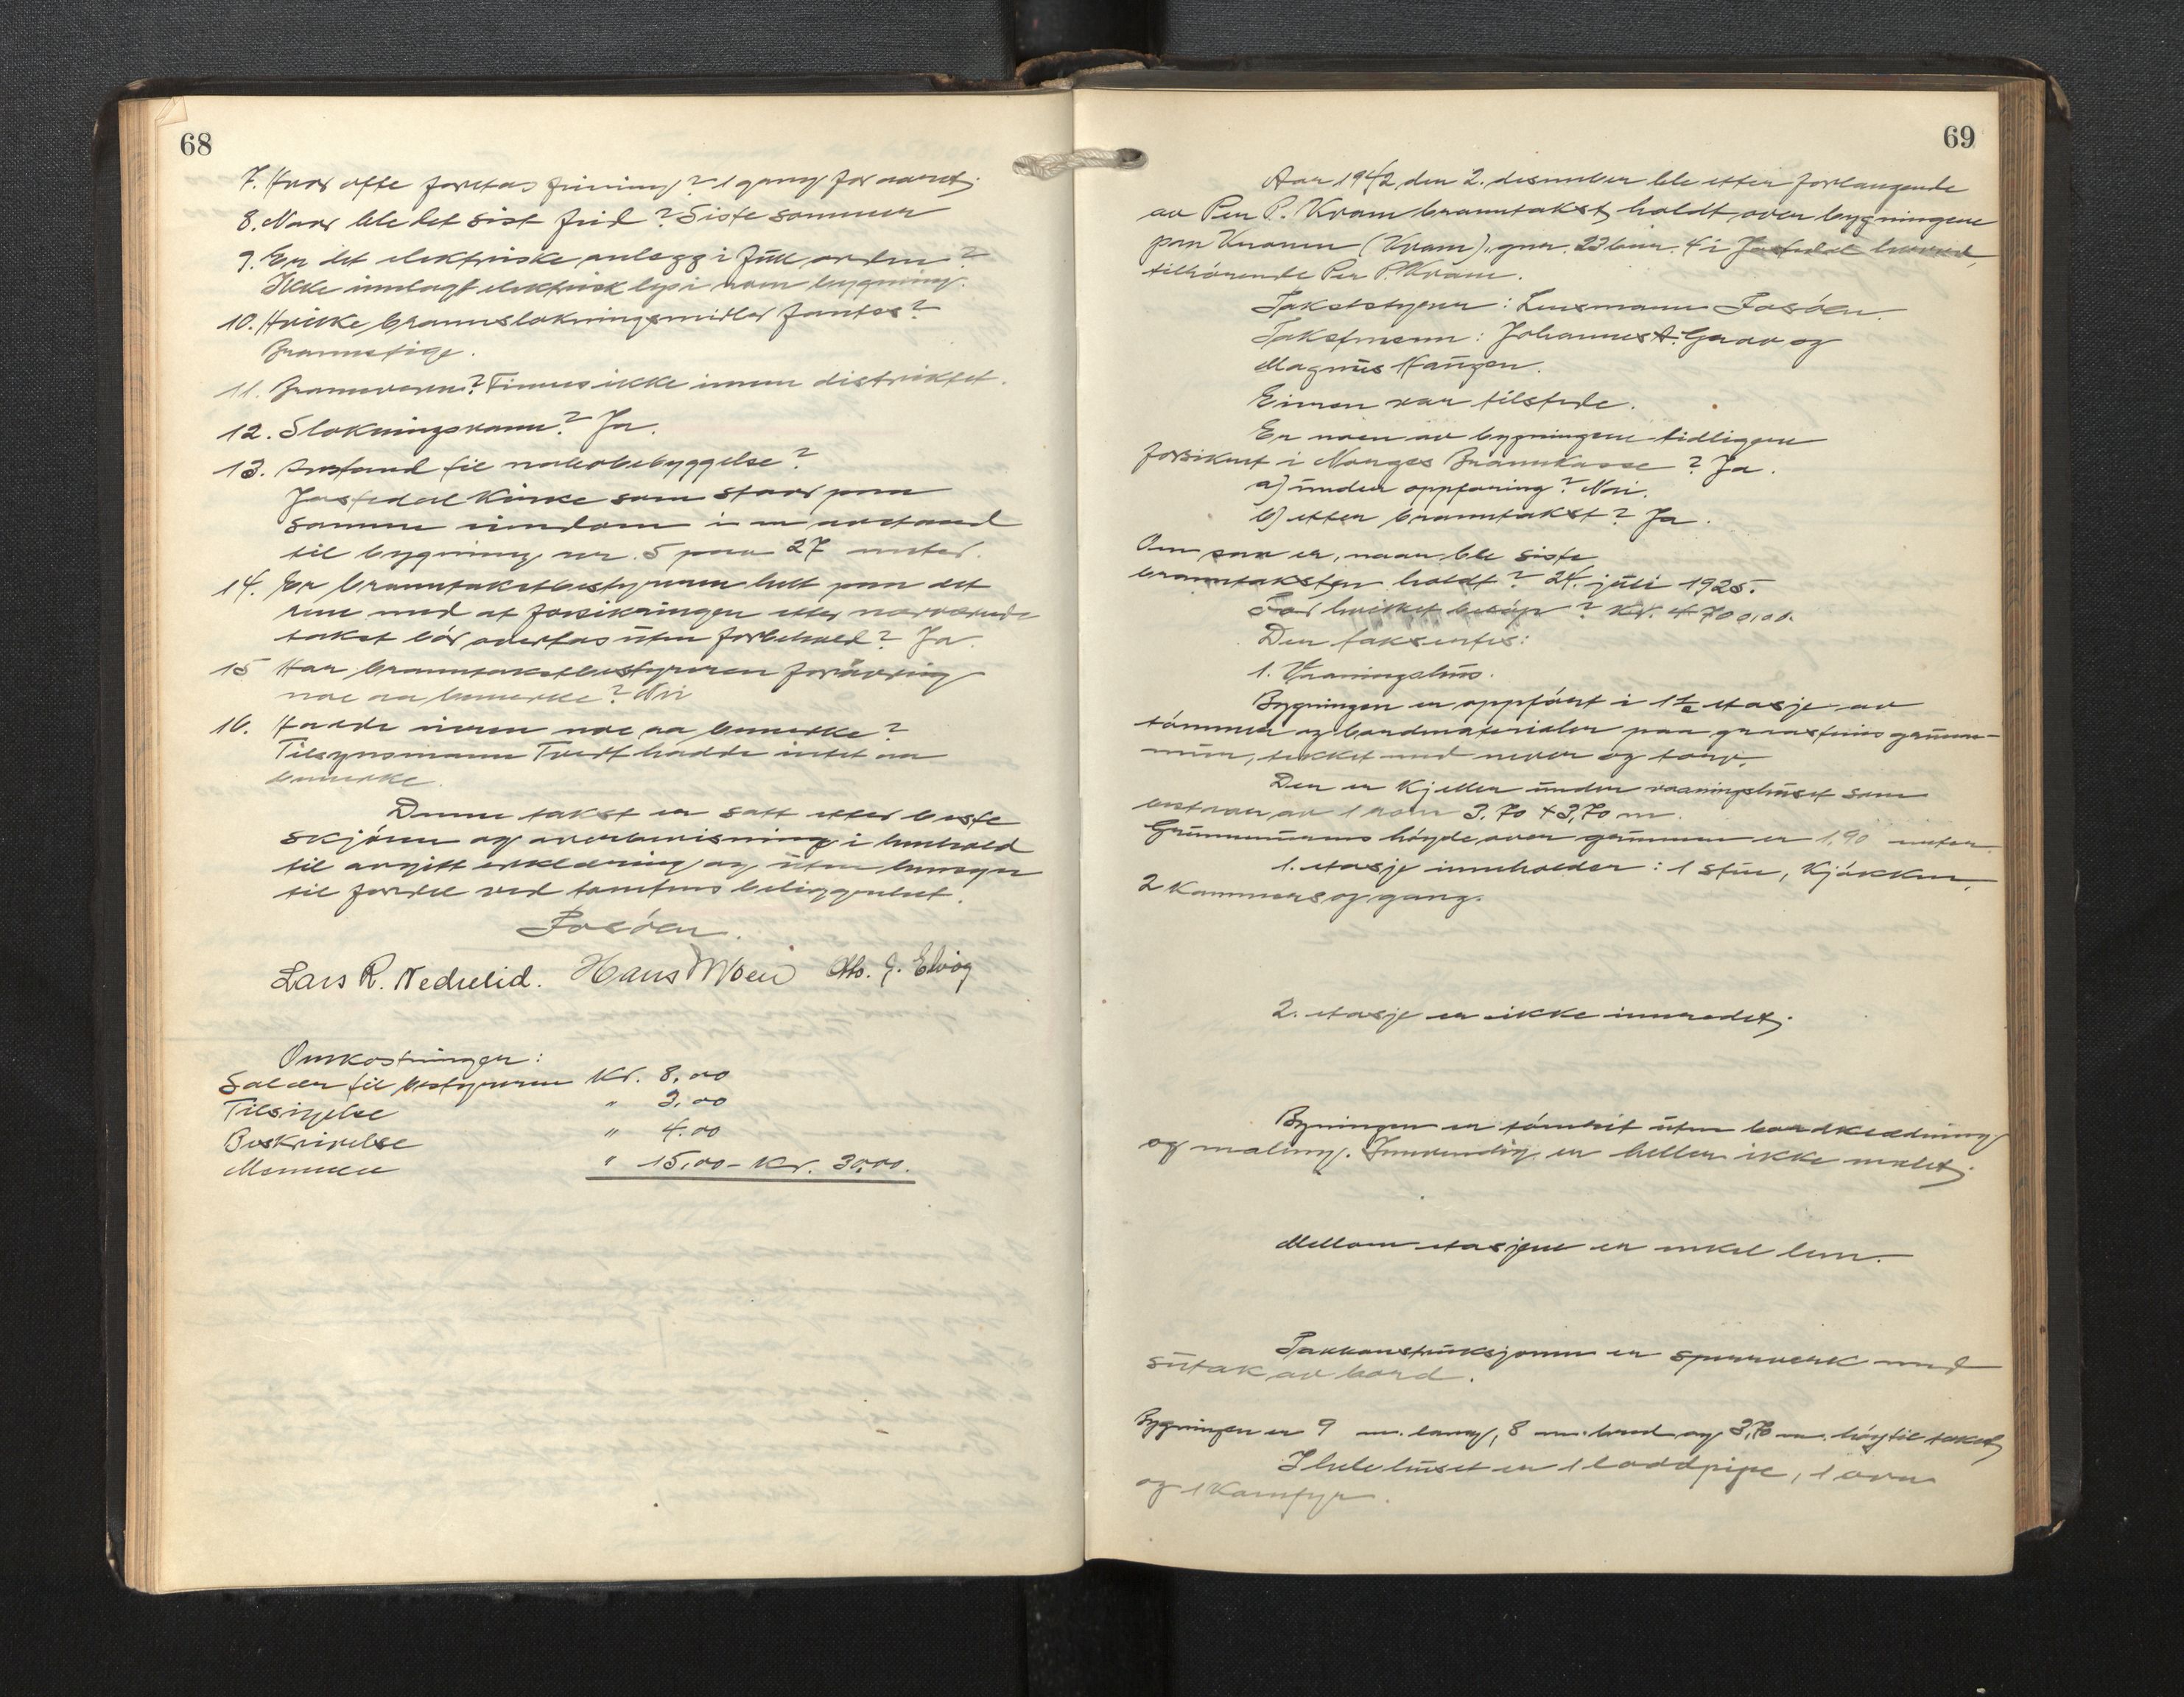 68
7. Hvor ofte foretas feining? 1 gang for aaret.
8. Naar ble det sist feid? Siste sommer
9. Er det elektriske anlegg i full orden?
Ikke innlagt elektrisk lys i noen bygning.
10. Hvilke brannslokningsmidler fantes?
Brannstige.
11. Brannvesen? Finnes ikke innen distriktet.
12. Slokningsvann? Ja.
13. Avstand til nabobebyggelse?
Jostedal Kirke som staar paa
samme eiendom i en avstand
til bygning nr. 5 paa 27 meter.
14. Er branntakstbestyreren helt paa det
rene med at forsikringen etter nærværende
takst bør overtas uten forbehold? Ja.
15 Har branntakstbestyreren forøvrig
noe aa bemerke? Nei
16. Hadde noen noe aa bemerke?
Tilsynsmann Tveit hadde intet aa
bemerke.
Denne takst er satt etter beste
skjønn og overbevisning i henhold
til avgitt erklæring og uten hensyn
til fordel ved tomtens beliggenhet.
Fosøen.
Lars R. Nedrelid. Hans Moen
Omkostninger:
Salær til bestyreren Kr. 8,00
Tilsigelse " 3,00
Beskrivelse " 4.00
Mennene " 15,00 - Kr. 30,00.
69
Aar 1942, den 2. desember ble etter forlangende
av Per P. Kvam branntakst holdt over bygningene
paa Kvamen (Kvam), gnr. 23 bnr. 4 i Jostedal herred,
tilhørende Per P. Kvam.
Takststyrer: Lensmann Fosøen.
Takstmenn: Johannes A. Gaar og
Magnus Haugen.
Eieren var tilstede.
Er noen av bygningene tidligere
forsikret i Norges Brannkasse? Ja.
a) under oppføring? Nei.
b) etter branntakst? Ja.
Om saa er, naar ble siste
branntaksten holdt? 24. juli 1925.
For hvilket beløp? Kr. 4700,00.
Der taksertes:
1. Vaaningshus.
Bygningen er oppført i 1 1/2 etasje av
tømmer og bordmaterialer paa graasteins grunn-
mur, tekket med never og torv.
Der er kjeller under vaaningshuset som
bestaar av 1 rom 3,70 x 3,70 m.
Grunnmurens høyde over grunnen er 1,90 meter.
1. etasje inneholder: 1 stue, kjøkken,
2 kammers og gang.
2. etasje er ikke innredet.
Bygningen er tømret uten bordkledning
og maling. Innvendig er heller ikke malet.
Mellom etasjene er enkel bun.
Takkonstruksjonen er sperreverk med
sutak av bord.
Bygningen er 9 m. lang, 8 m. bred og 3,70 m. høy til taket
I hele huset er 1 loddpipe, 1 ovn
og 1 komfyr.